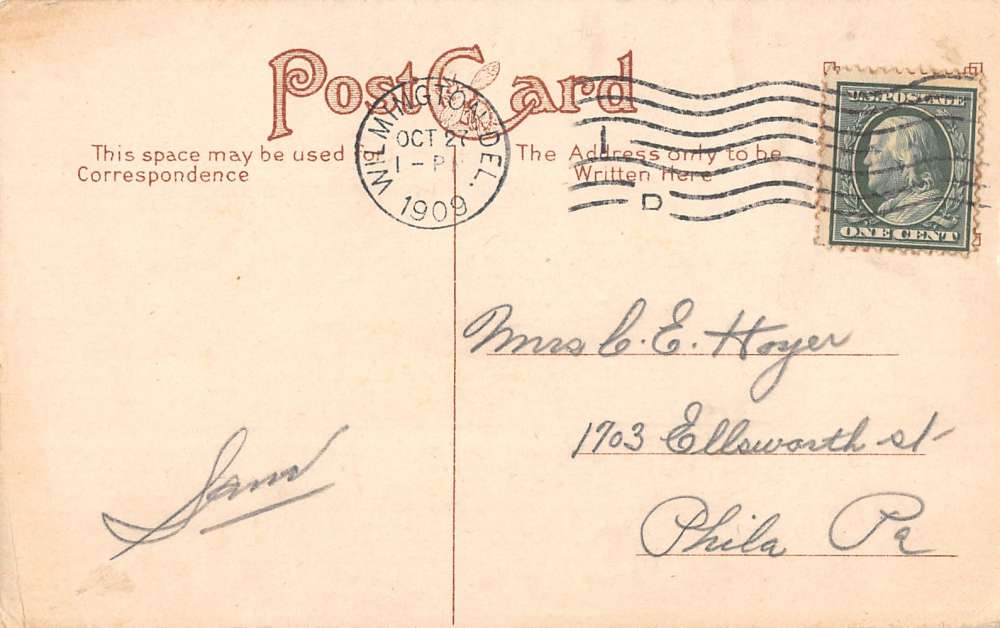 Post Card
WILMINGTON, DEL.
OCT 27
1-P
1909
1
D
U.S. POSTAGE
ONE CENT
This space may be used
Correspondence
The Address only to be
Written Here
Mrs C. E. Hoyer
1703 Ellsworth st
Phila Pa